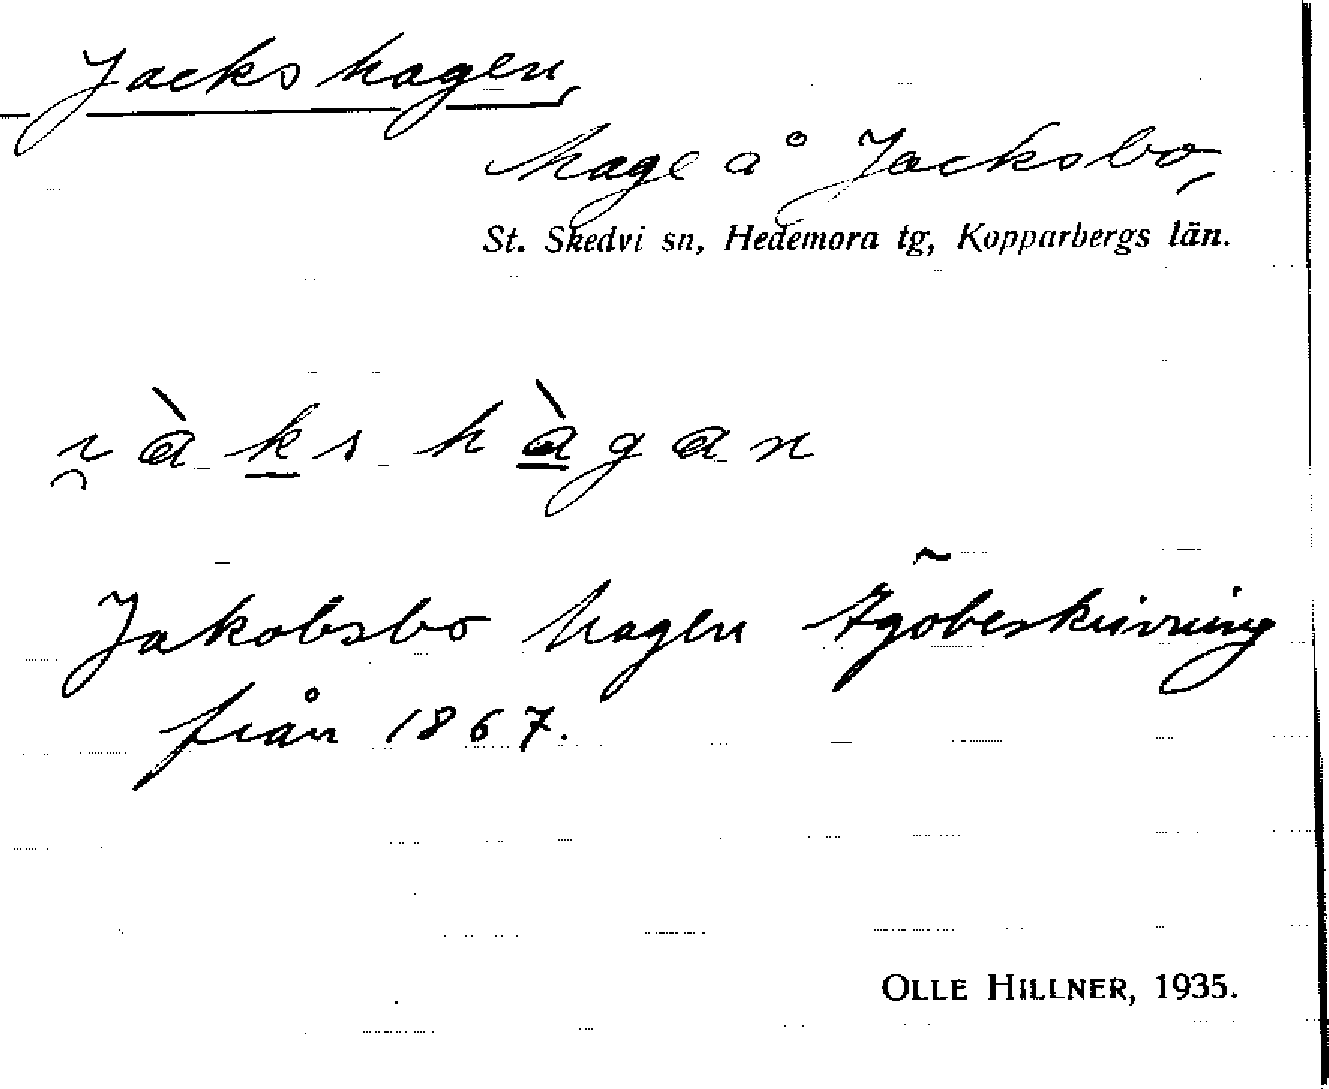 Jackshagen,
hage å Jacksbo,
St. Skedvi sn, Hedemora tg, Kopparbergs län.
Jakobsbo hagen Ägobeskrivning
från 1867.
OLLE HILLNER, 1935.